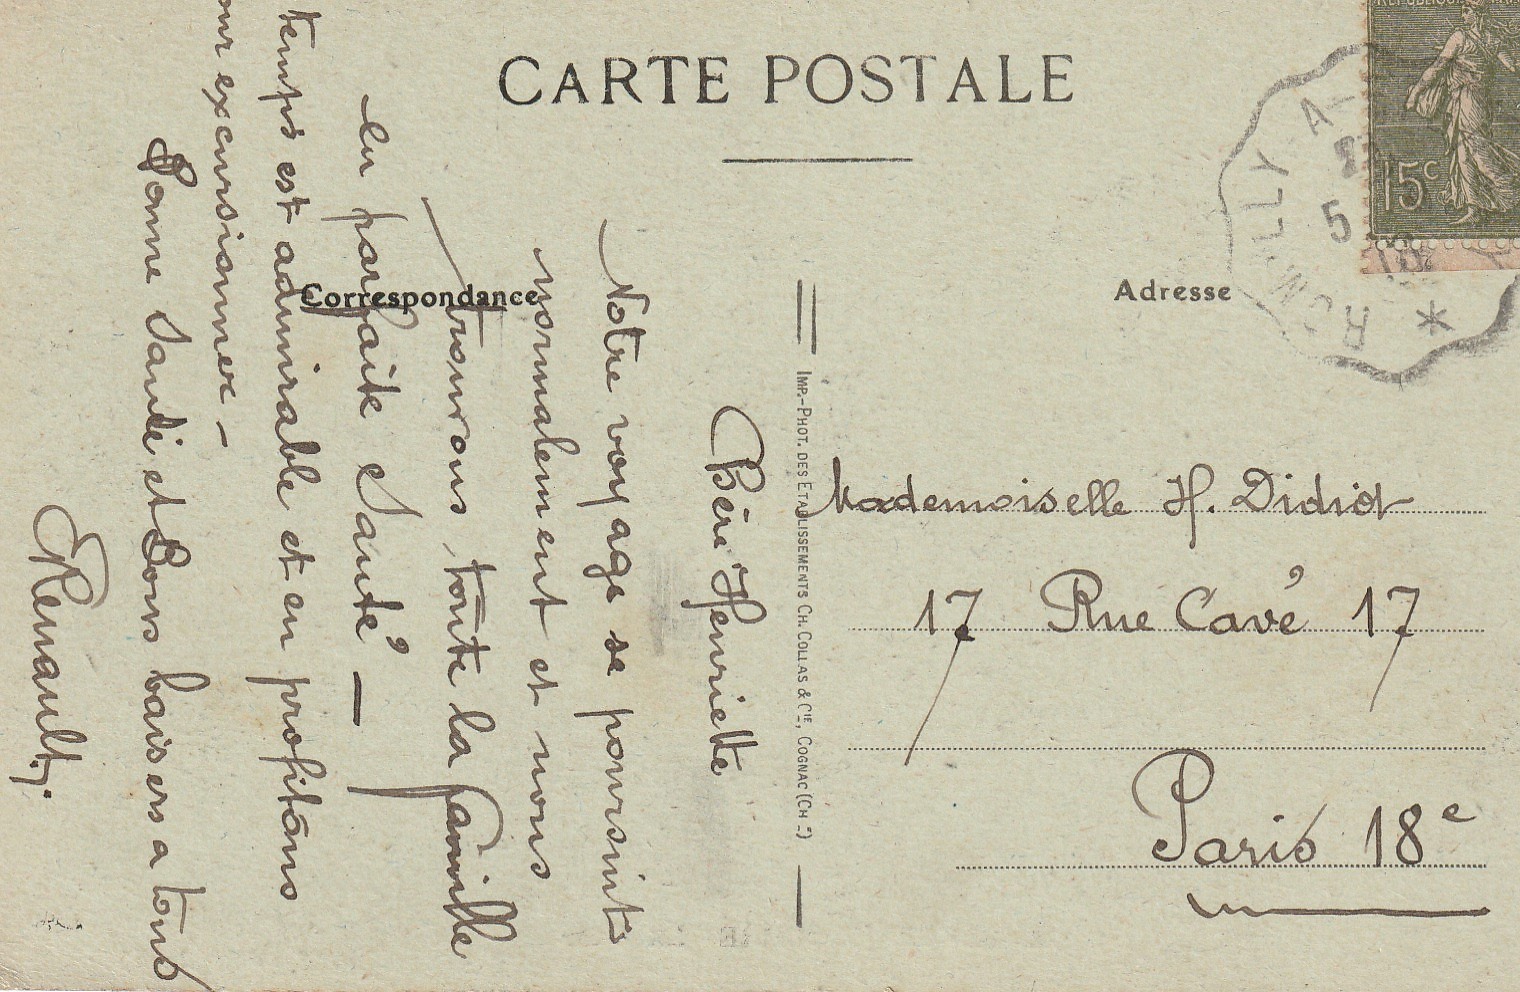 CARTE POSTALE
Correspondance
Adresse
Chère Henriette
Notre voyage se poursuit
normalement et nous
trouvons toute la famille
en parfaite santé —
temps est admirable et en profitons
excursionner —
Bonne Santé et Bons baisers a tous
Renault
IMP.-PHOT. DES ETABLISSEMENTS CH. COLLAS & CIE, COGNAC (CH TE)
Mademoiselle H. Didiot
17 Rue Cavé 17
Paris 18e
15c